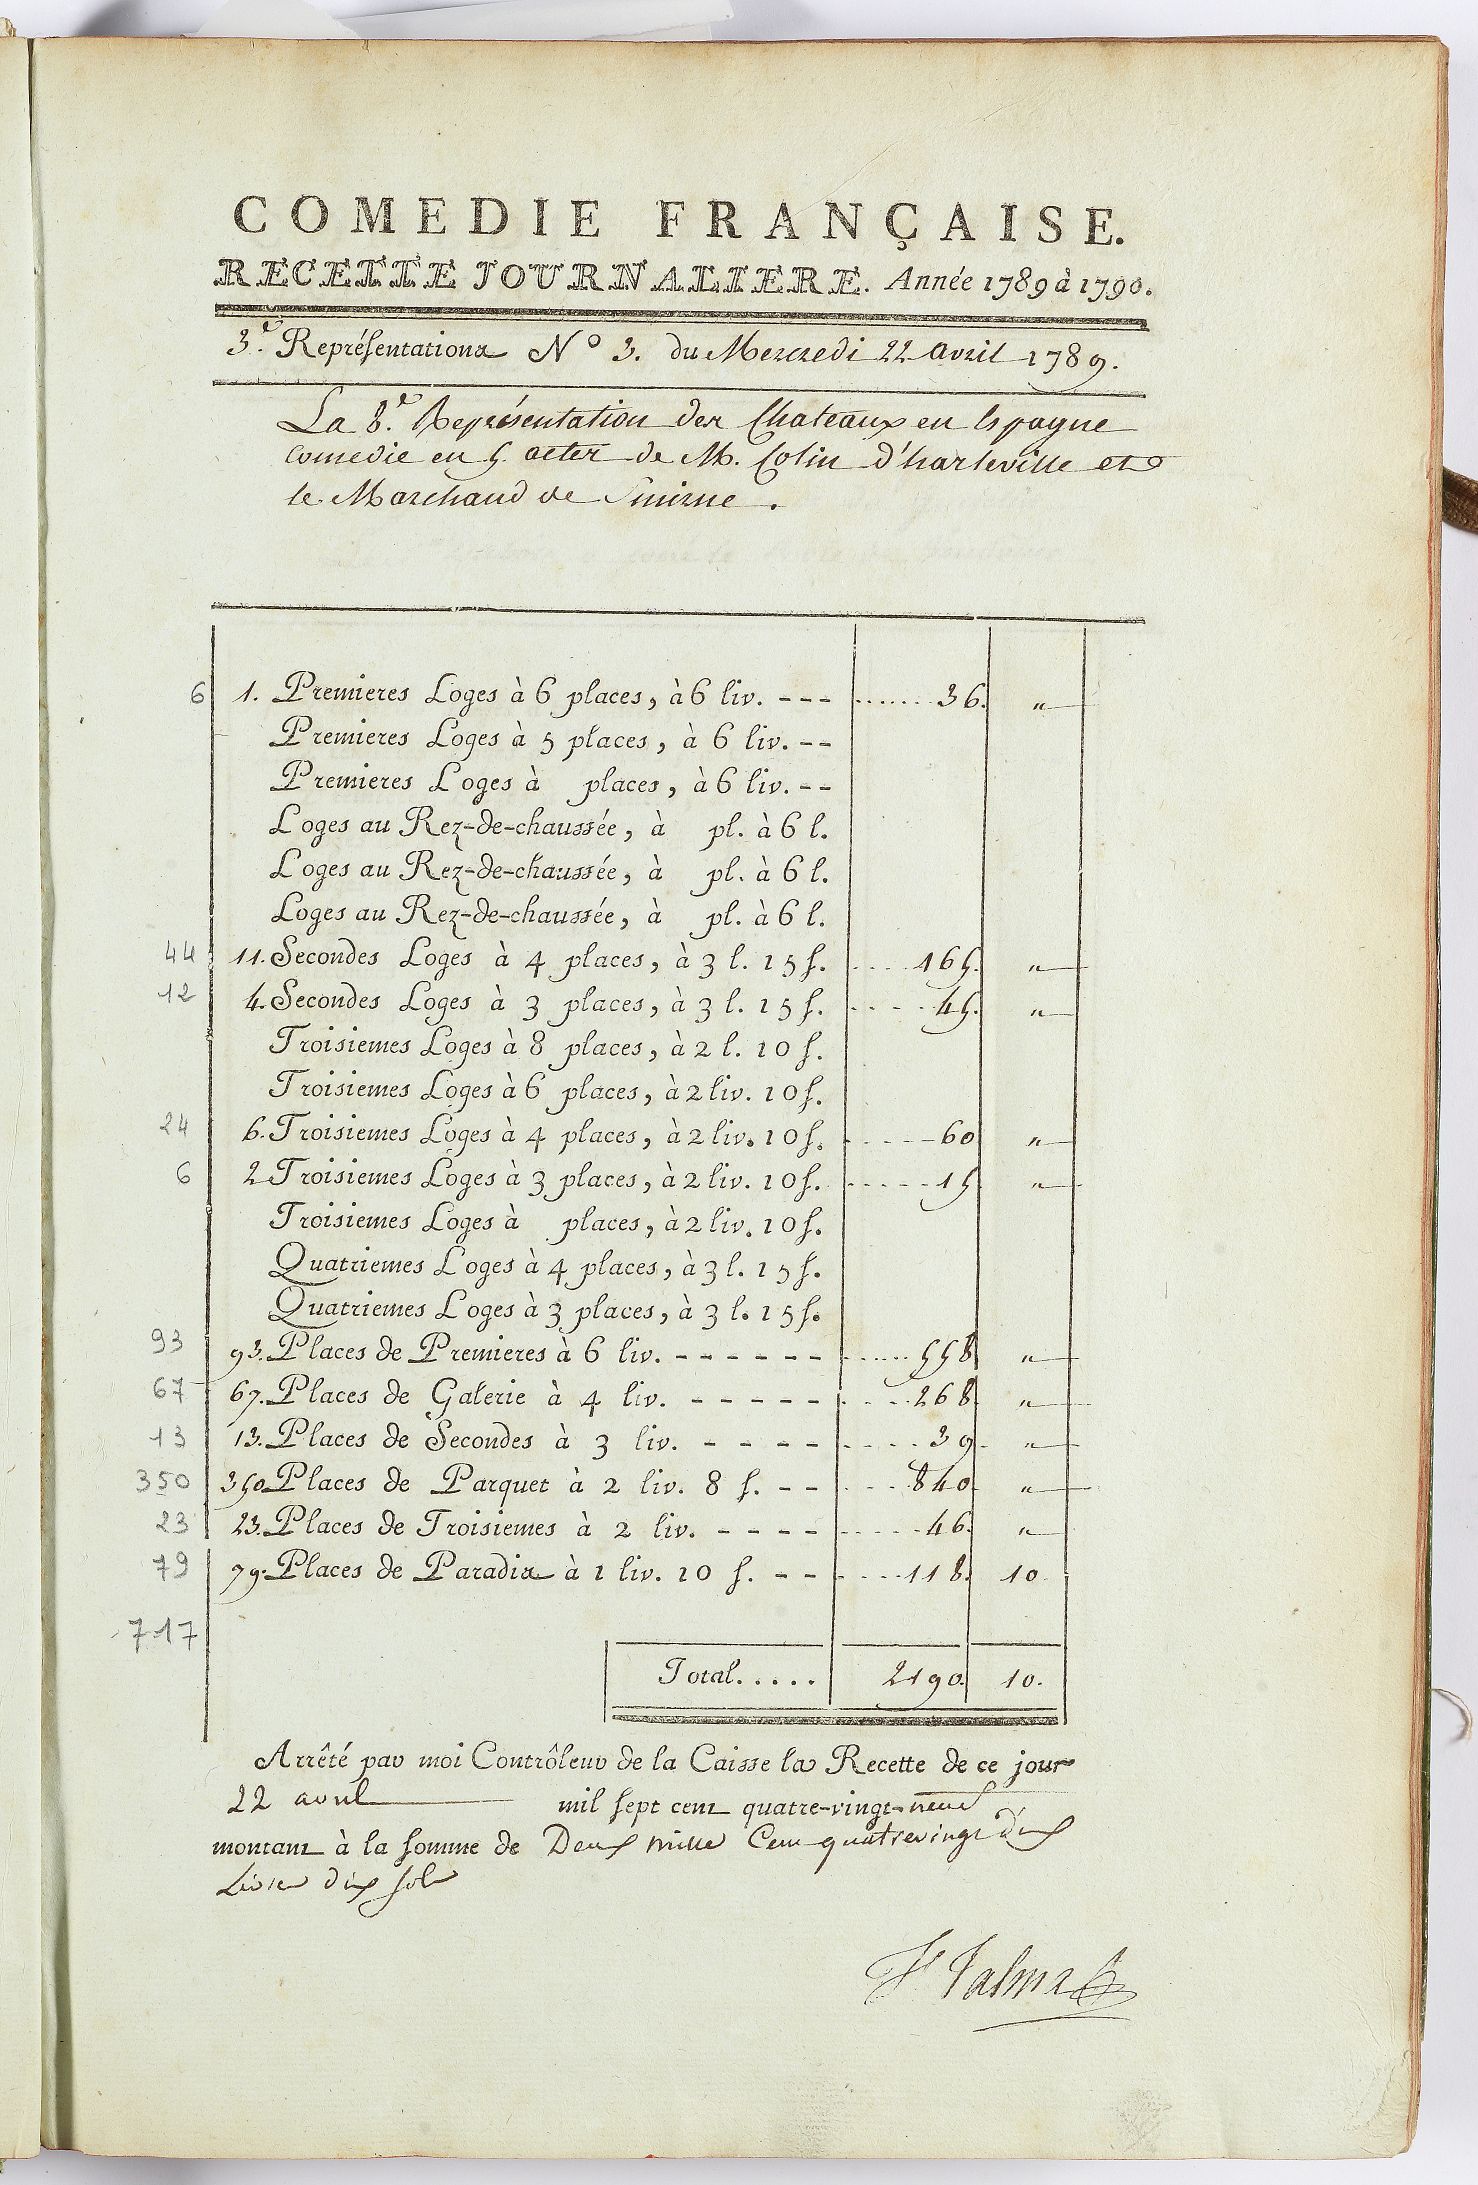 COMEDIE FRANÇAISE.
RECETTE JOURNALIERE. Année 1789 à 1790.
3.e Représentation N° 3. du Mercredi 22 avril 1789.
La 8.e Représentation des Chateaux en Espagne
comedie en 5 actes de M. Colin d'harleville et
le Marchand de Smirne.
6 1. Premieres Loges à 6 places, à 6 liv. --- ....... 36. "
Premieres Loges à 5 places, à 6 liv. --
Premieres Loges à places, à 6 liv. --
Loges au Rez-de-chaussée, à pl. à 6 l.
Loges au Rez-de-chaussée, à pl. à 6 l.
Loges au Rez-de-chaussée, à pl. à 6 l.
44 11. Secondes Loges à 4 places, à 3 l. 15 ſ. .... 165. "
12 4. Secondes Loges à 3 places, à 3 l. 15 ſ. .... 45. "
Troisiemes Loges à 8 places, à 2 l. 10 ſ.
Troisiemes Loges à 6 places, à 2 liv. 10 ſ.
24 6. Troisiemes Loges à 4 places, à 2 liv. 10 ſ. ----- 60 "
6 2 Troisiemes Loges à 3 places, à 2 liv. 10 ſ. ----- 15 "
Troisiemes Loges à places, à 2 liv. 10 ſ.
Quatriemes Loges à 4 places, à 3 l. 15 ſ.
Quatriemes Loges à 3 places, à 3 l. 15 ſ.
93 93. Places de Premieres à 6 liv. ------ ..... 558 "
67 67. Places de Galerie à 4 liv. ----- .... 268 "
13 13. Places de Secondes à 3 liv. ---- ..... 39. "
350 350 Places de Parquet à 2 liv. 8 ſ. -- .... 840 "
23 23. Places de Troisiemes à 2 liv. ---- ..... 46. "
79 79. Places de Paradis à 1 liv. 10 ſ. -- .... 118. 10
717
Total..... 2190. 10.
Arrêté par moi Contrôleur de la Caisse la Recette de ce jour
22 avril mil ſept cent quatre-vingt-neuf
montant à la ſomme de Deux mille Cent quatrevingt dix
Livres dix sols
Talma